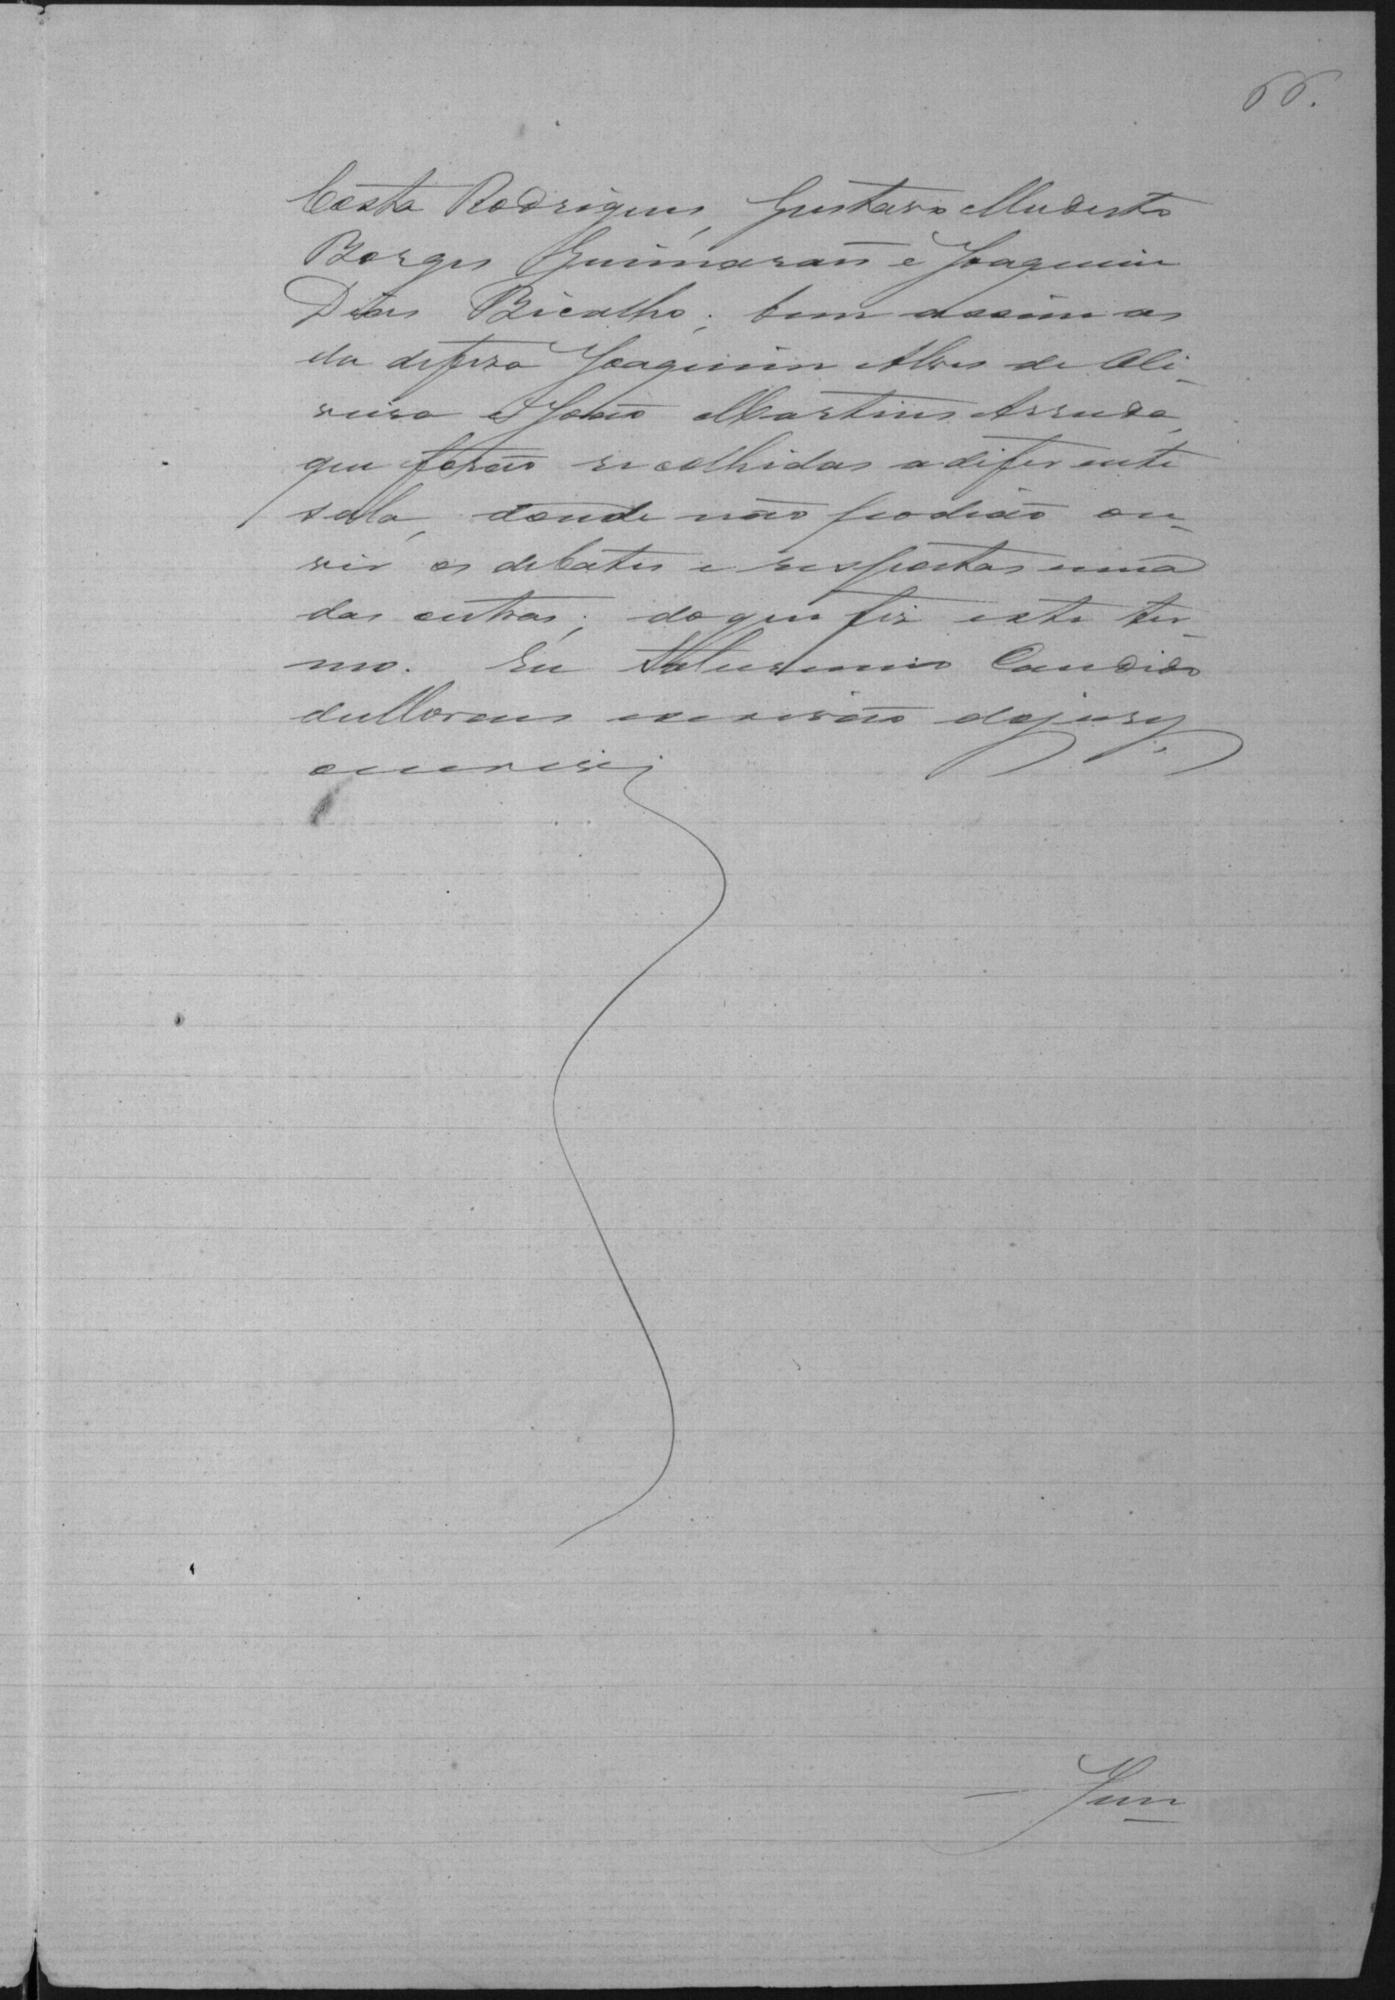 66.
Costa Rodrigues, Gustavo Modesto
Borges Guimarães e Joaquim
Dias Bicalho; bem assim as
da defesa Joaquim Alves de Oli-
veira e João Martins Arruda,
que forão recolhidas a diferente
sala, donde não podião ou-
vir os debates e respostas uma
das outras; do que fiz este ter-
mo. Eu Candido
de Moraes escrivão do jury
escrevi.
Jun